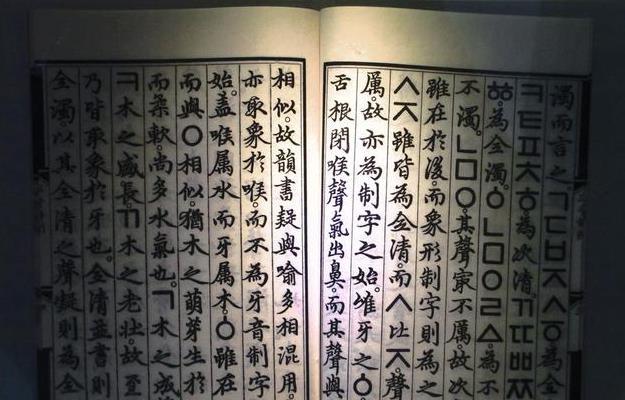 濁而言之。ㄱㄷㅂㅈㅅㆆ。為全
ㅋㅌㅍㅊㅎ。為次清。ㄲㄸㅃㅉ
ㆅ。為全濁。ㆁㄴㅁㅇㄹㅿ。為不
不濁。ㄴㅁㅇ。其聲㝡不厲。故次
雖在於後。而象形制字則為之
ㅅㅈ雖皆為全清。而ㅅ比ㅈ。聲
厲。故亦為制字之始。唯牙之ㆁ
舌根閉喉聲氣出鼻。而其聲與
相似。故韻書疑與喻多相混用。
亦取象於喉。而不為牙音制字
始。盖喉屬水而牙屬木。ㆁ雖在
而與ㅇ相似。猶木之萌芽生於
而柔軟。尚多水氣也。ㄱ木之成
ㅋ木之盛長。ㄲ木之老壯。故至
乃皆取象於牙也。全清並書則
全濁。以其全清之聲凝則為全